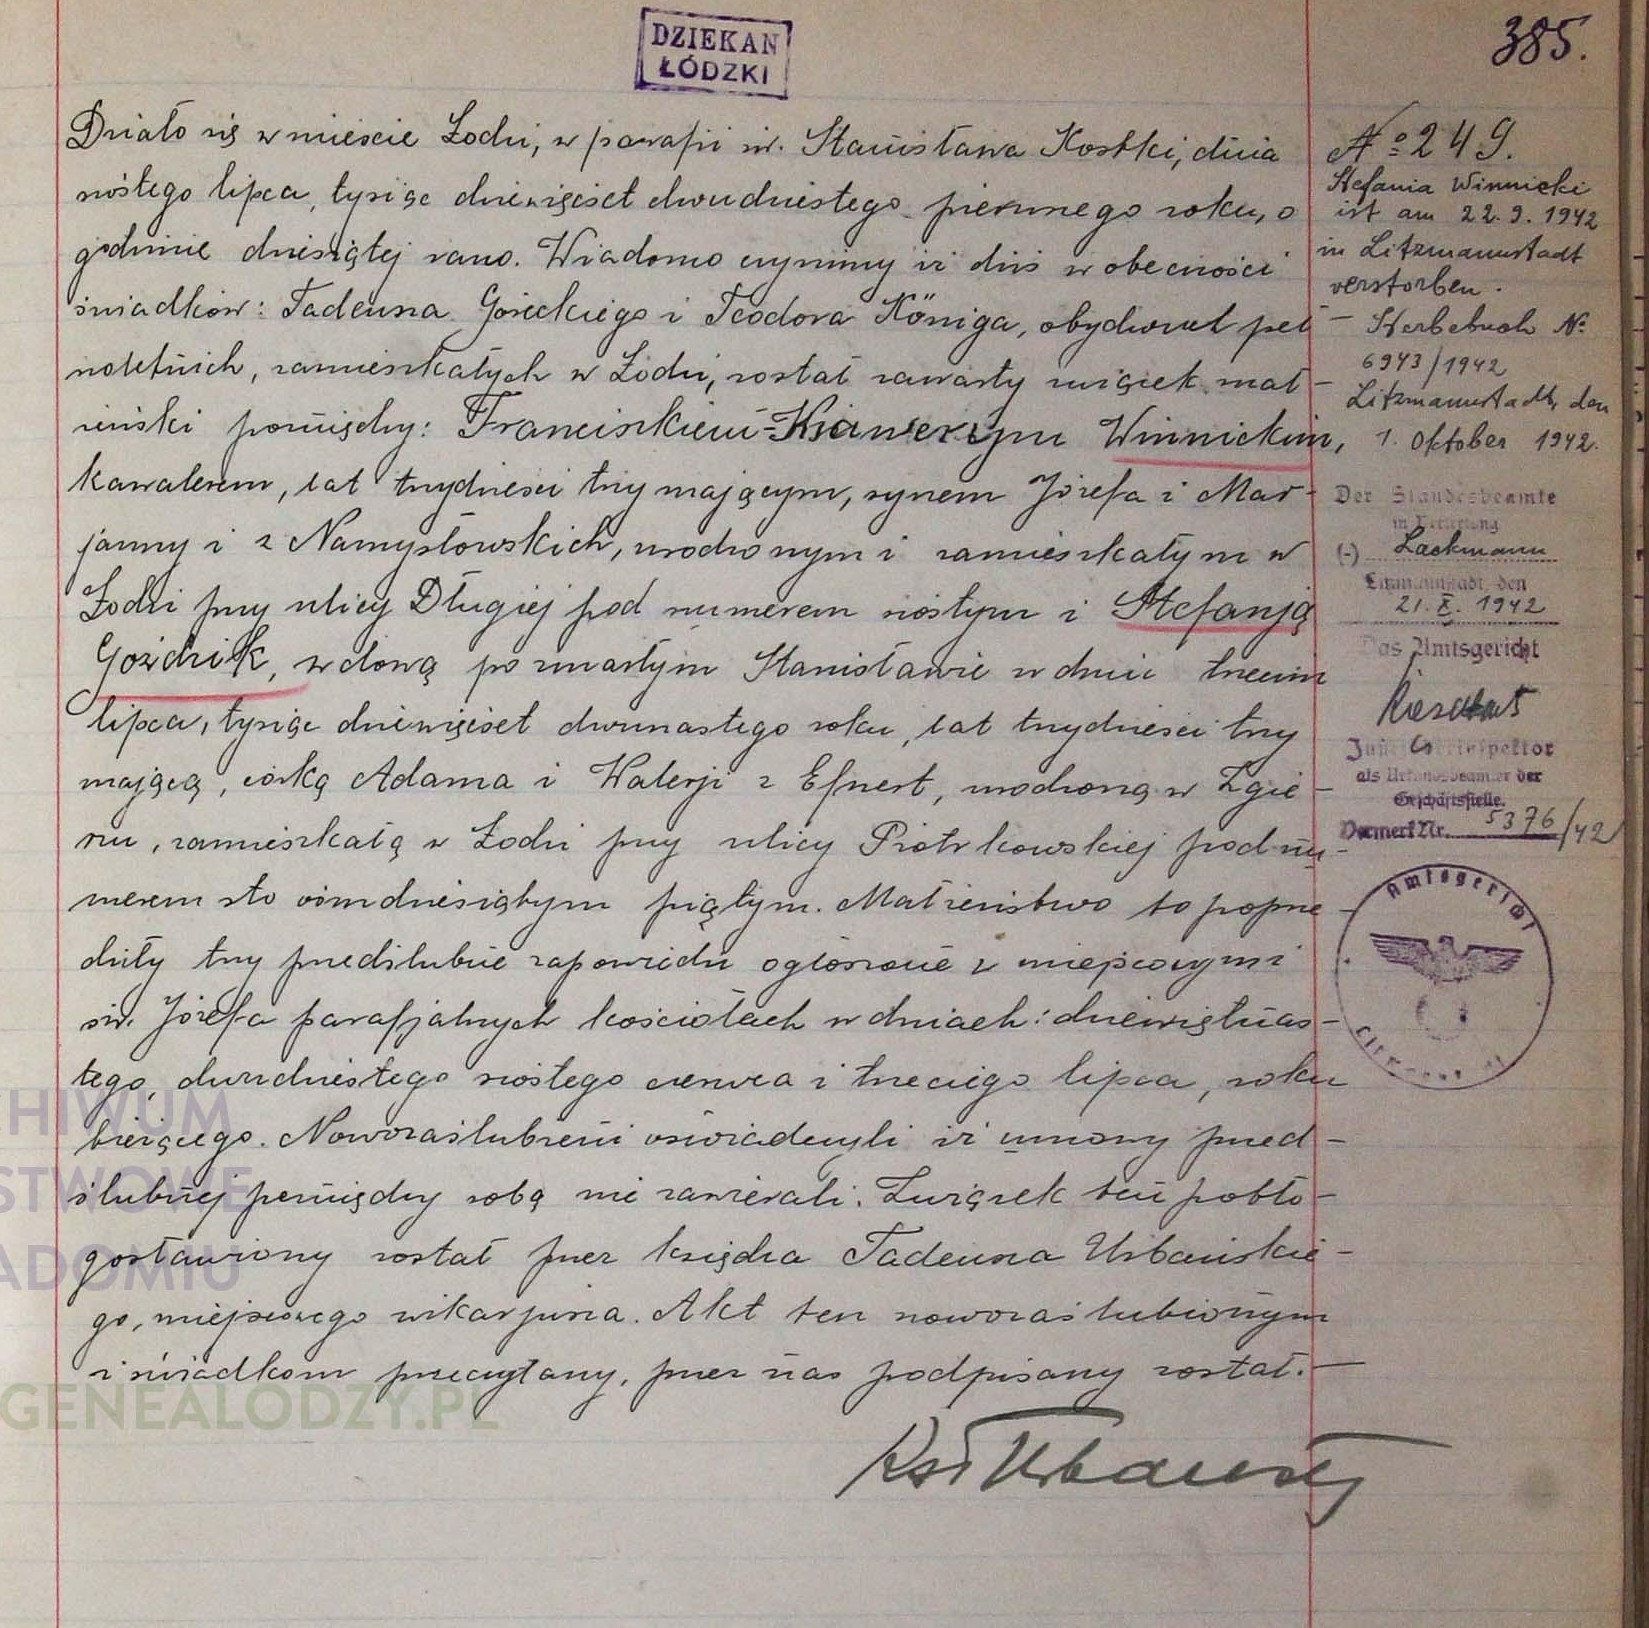 385.
DZIEKAN
ŁÓDZKI
Działo się w mieście Łodzi, w parafii św. Stanisława Kostki, dnia
szóstego lipca, tysiąc dziewięćset dwudziestego pierwszego roku, o
godzinie dziesiątej rano. Wiadomo czynimy iż dziś w obecności
świadków: Tadeusza Goreckiego i Teodora Königa, obydwuch peł
noletnich, zamieszkałych w Łodzi, został zawarty związek mał-
żeński pomiędzy: Franciszkiem-Ksawerym Winnickim,
kawalerem, lat trzydzieści trzy mającym, synem Józefa i Mar-
janny i z Namysłowskich, urodzonym i zamieszkałym w
Łodzi przy ulicy Długiej pod numerem szóstym i Stefanją
Goździk, wdową po zmarłym Stanisławie w dniu trzecim
lipca, tysiąc dziewięćset dwunastego roku, lat trzydzieści trzy
mającą, córką Adama i Walerji z Efnert, urodzoną w Zgie-
rzu, zamieszkałą w Łodzi przy ulicy Piotrkowskiej pod nu-
merem sto ośmdziesiątym piątym. Małżeństwo to poprze-
dziły trzy przedślubne zapowiedzi ogłoszone w miejscowym i
św. Józefa parafjalnych kościołach w dniach: dziewiętnas-
tego, dwudziestego szóstego czerwca i trzeciego lipca, roku
bieżącego. Nowozaślubieni oświadczyli iż umowy przed-
ślubnej pomiędzy sobą nie zawierali. Związek ten pobło-
gosławiony został przez księdza Tadeusza Urbańskie-
go, miejscowego wikarjusza. Akt ten nowozaślubionym
i świadkom przeczytany, przez nas podpisany został.—
Ks T Urbański
№ 249.
Stefania Winnicki
ist am 22.9.1942
in Litzmannstadt
verstorben.
— Sterbebuch Nr
6943/1942
Litzmannstadt, den
1. Oktober 1942.
Der Standesbeamte
in Vertretung
(-) Lackmann
Litzmannstadt, den
21. X. 1942
Das Amtsgericht
als Urkundsbeamter der
Geschäftsstelle.
Vermerk Nr. 5376/42
Amtsgericht
ARCHIWUM
PAŃSTWOWE
W RADOMIU
GENEALODZY.PL